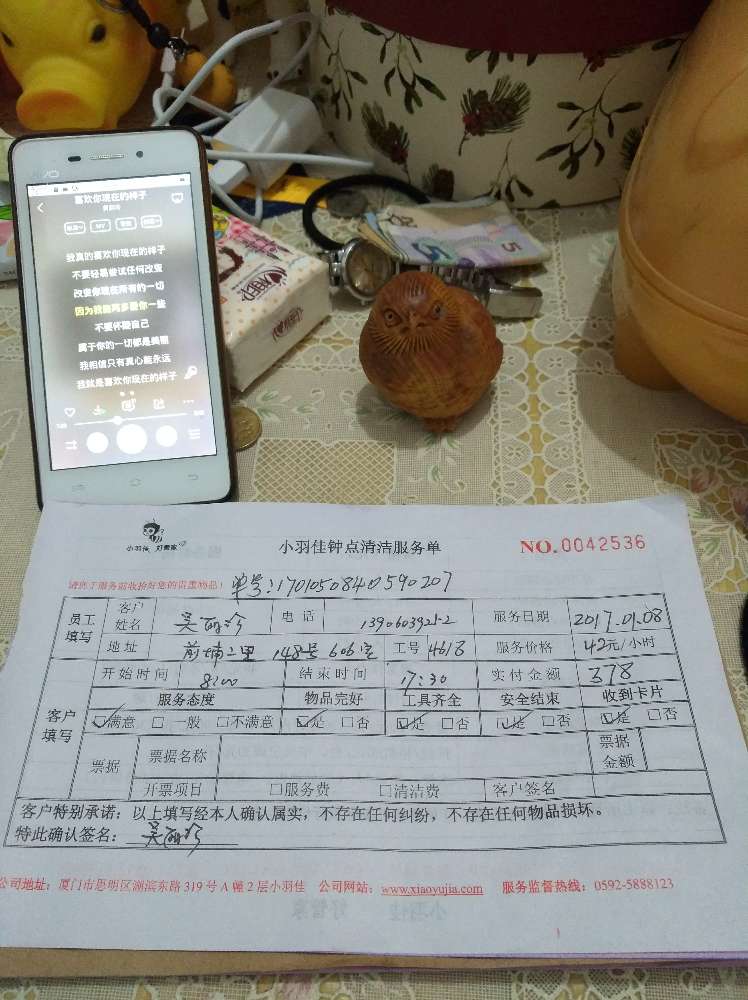 喜欢你现在的样子
我真的喜欢你现在的样子
不要轻易尝试任何改变
改变你现在所有的一切
不要怀疑自己
属于你的一切都是美丽
我相信只有真心能永远
我就是喜欢你现在的样子
5
小羽佳 好管家
小羽佳钟点清洁服务单
NO.0042536
请您于服务前收拾好您的贵重物品!
单号:1701050840590207
员工填写 客户姓名 吴丽珍 电话 13906039212 服务日期 2017.01.08
地址 前埔二里 148号 606室 工号 4618 服务价格 42元/小时
客户填写 开始时间 8:00 结束时间 17:30 实付金额 378
服务态度 物品完好 工具齐全 安全结束 收到卡片
☑满意 □一般 □不满意 ☑是 □否 ☑是 □否 ☑是 □否 ☑是 □否
票据 票据名称 票据金额
开票项目 □服务费 □清洁费 客户签名
客户特别承诺:以上填写经本人确认属实,不存在任何纠纷,不存在任何物品损坏。
特此确认签名: 吴丽珍
公司地址:厦门市思明区湖滨东路 319 号 A 幢 2 层小羽佳 公司网站:www.xiaoyujia.com 服务监督热线:0592-5888123